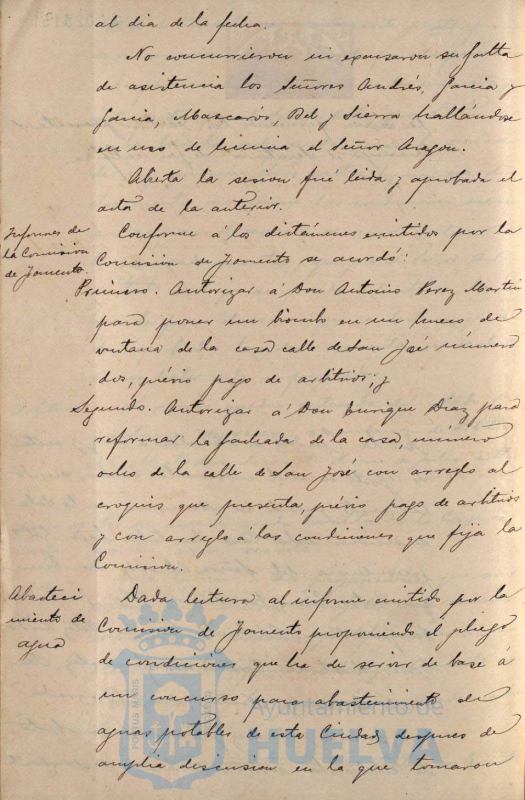 al dia de la fecha.
No concurrieron ni excusaron su falta
de asistencia los Señores Andrés, Garcia y
Garcia, Mascarós, Bel y Sierra hallándose
en uso de licencia el Señor Aragon.
Abierta la sesion fué leida y aprobada el
acta de la anterior.
Informes de
la Comision
de Fomento.
Conforme á los dictámenes emitidos por la
Comision de Fomento se acordó:
Primero. Autorizar á Don Antonio Perez Martin
para poner un biombo en un hueco de
ventana de la casa calle de San José número
dos, prévio pago de arbitrios; y
Segundo. Autorizar á Don Enrique Diaz para
reformar la fachada de la casa, número
ocho de la calle de San José con arreglo al
croquis que presenta, prévio pago de arbitrios
y con arreglo á las condiciones que fija la
Comision.
Abasteci
miento de
agua
Dada lectura al informe emitido por la
Comision de Fomento proponiendo el pliego
de condiciones que ha de servir de base á
un concurso para abastecimiento de
aguas potables de esta Ciudad, despues de
amplia discusion en la que tomaron
PORTUS MARIS
Ayuntamiento de
HUELVA